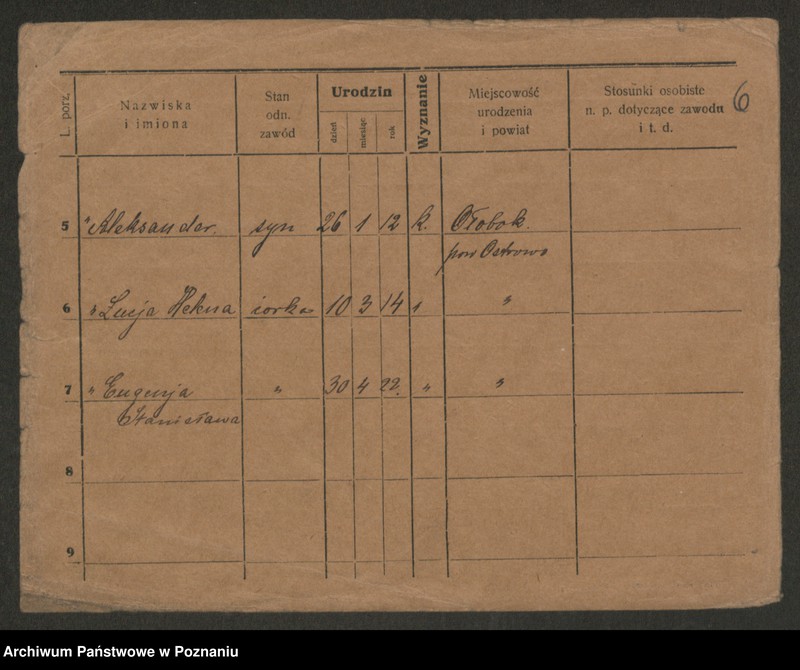 L. porz.
Nazwiska
i imiona
Stan
odn.
zawód
Urodzin
dzień
miesiąc
rok
Wyznanie
Miejscowość
urodzenia
i powiat
Stosunki osobiste
n. p. dotyczące zawodu
i t. d.
6
5 " Aleksander. syn 26 1 12 k. Ołobok.
pow Ostrowo
6 " Lucja Helena córka 10 3 14 " "
7 " Eugenja " 30 4 22. " "
Stanisława
8
9
Archiwum Państwowe w Poznaniu